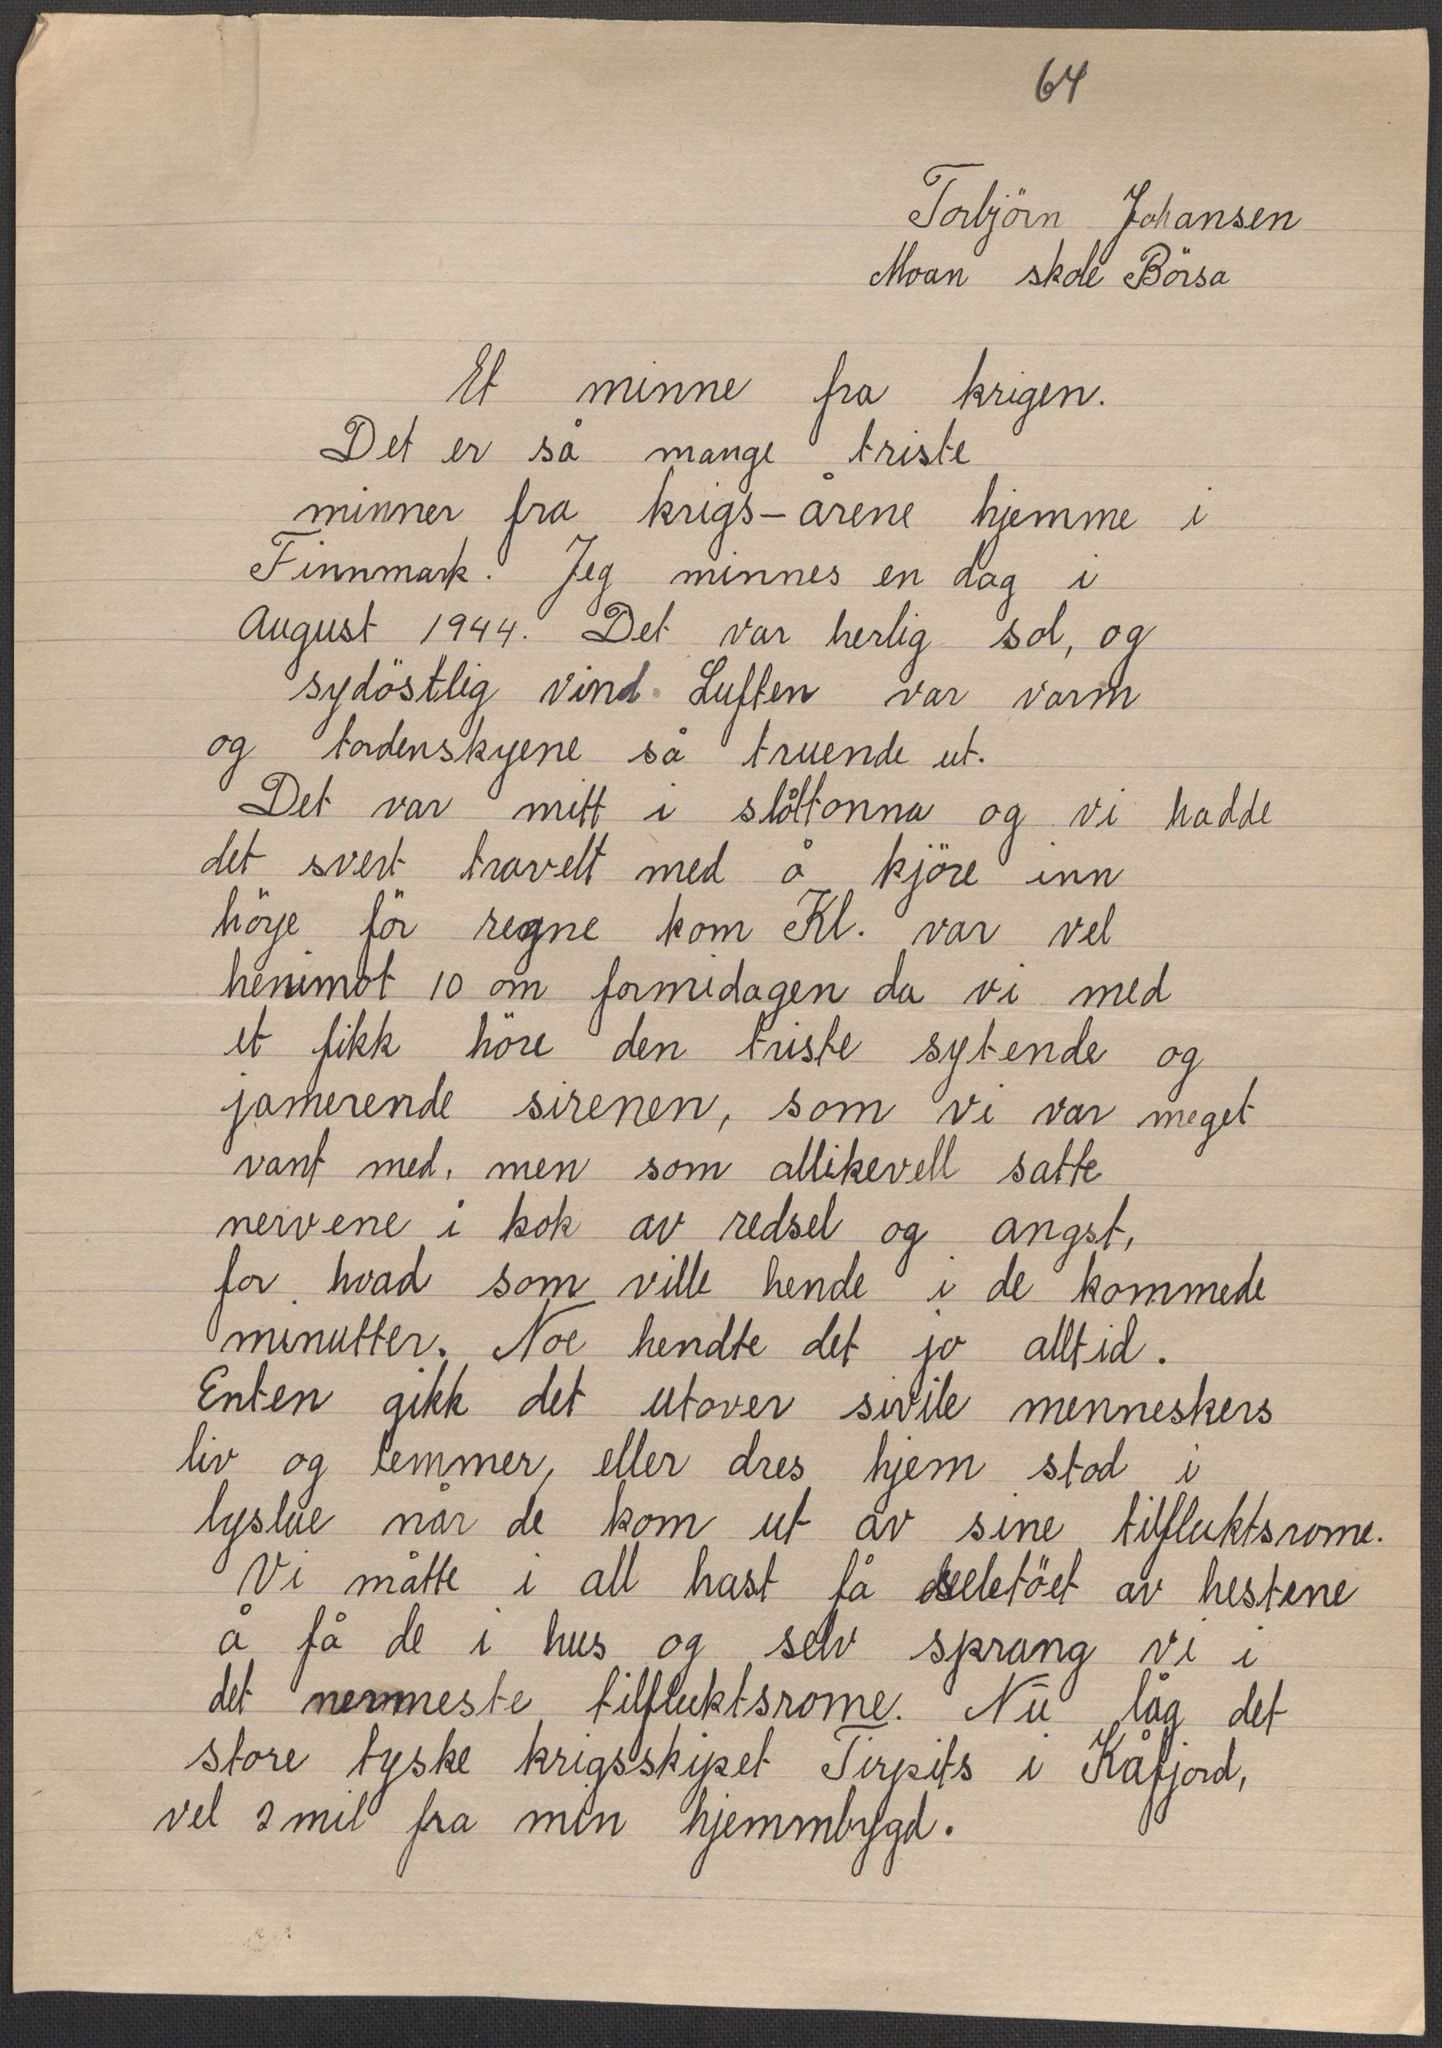 64
Torbjörn Johansen
Moan skole Börsa
Et minne fra krigen.
Det er så mange triste
minner fra krigs-årene hjemme i
Finnmark. Jeg minnes en dag i
August 1944. Det var herlig sol, og
sydöstlig vind. Luften var varm
og tordenskyene så truende ut.
Det var mitt i slåttonna og vi hadde
det svert travelt med å kjöre inn
höye för regne kom Kl. var vel
henimot 10 om formidagen da vi med
et fikk höre den triste sytende og
jamerende sirenen, som vi var meget
vant med, men som allikevell satte
nervene i kok av redsel og angst,
for hvad som ville hende i de kommede
minutter. Noe hendte det jo alltid.
Enten gikk det utover sivile menneskers
liv og lemmer, eller dres hjem stod i
lyslue når de kom ut av sine tilfluktsrome.
Vi måtte i all hast få seletöet av hestene
å få de i hus og selv sprang vi i
det nermeste tilfluktsrome. Nu låg det
store tyske krigsskipet Tirpits i Kåfjord,
vel 2 mil fra min hjemmbygd.